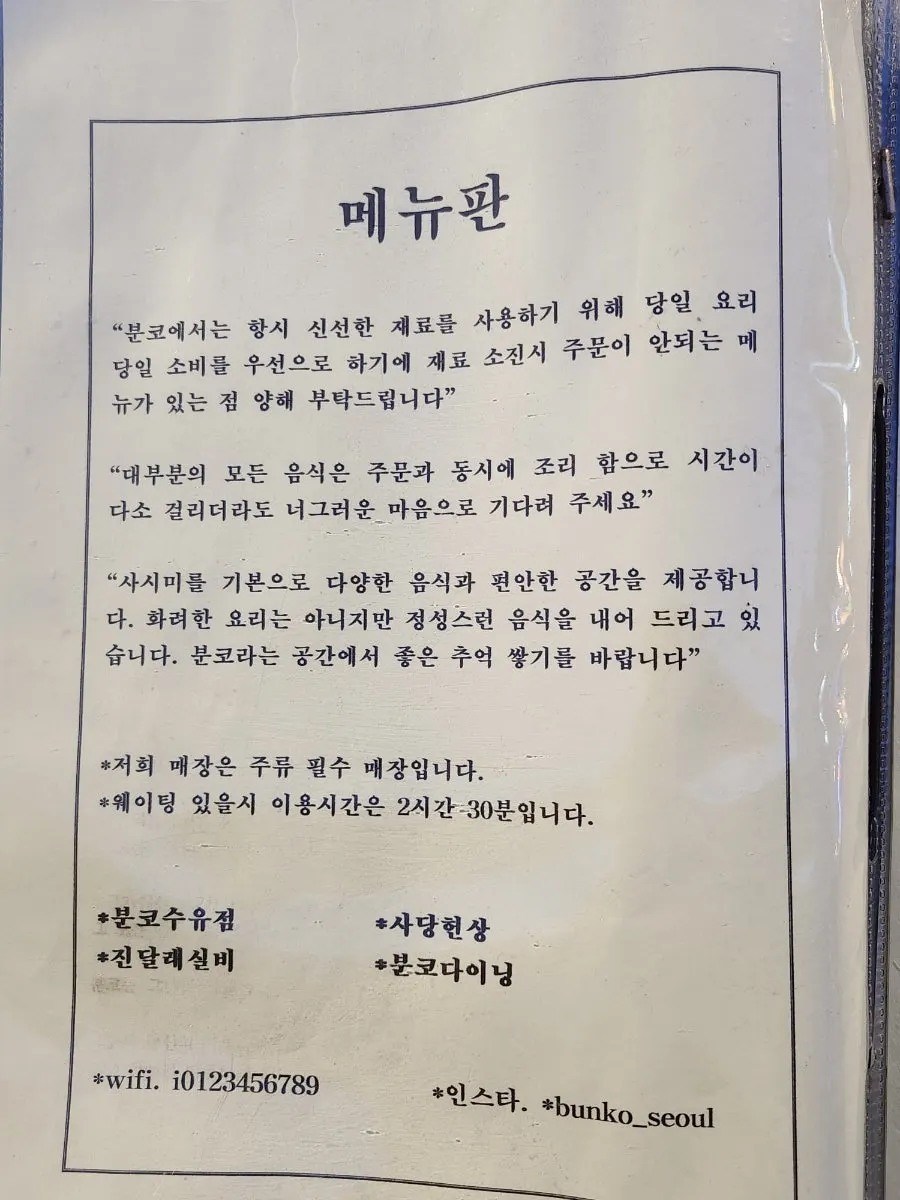 메뉴판
“분코에서는 항시 신선한 재료를 사용하기 위해 당일 요리
당일 소비를 우선으로 하기에 재료 소진시 주문이 안되는 메
뉴가 있는 점 양해 부탁드립니다”
“대부분의 모든 음식은 주문과 동시에 조리 함으로 시간이
다소 걸리더라도 너그러운 마음으로 기다려 주세요”
“사시미를 기본으로 다양한 음식과 편안한 공간을 제공합니
다. 화려한 요리는 아니지만 정성스런 음식을 내어 드리고 있
습니다. 분코라는 공간에서 좋은 추억 쌓기를 바랍니다”
*저희 매장은 주류 필수 매장입니다.
*웨이팅 있을시 이용시간은 2시간 30분입니다.
*분코수유점 *사당헌상
*진달래실비 *분코다이닝
*wifi. i0123456789 *인스타. *bunko_seoul